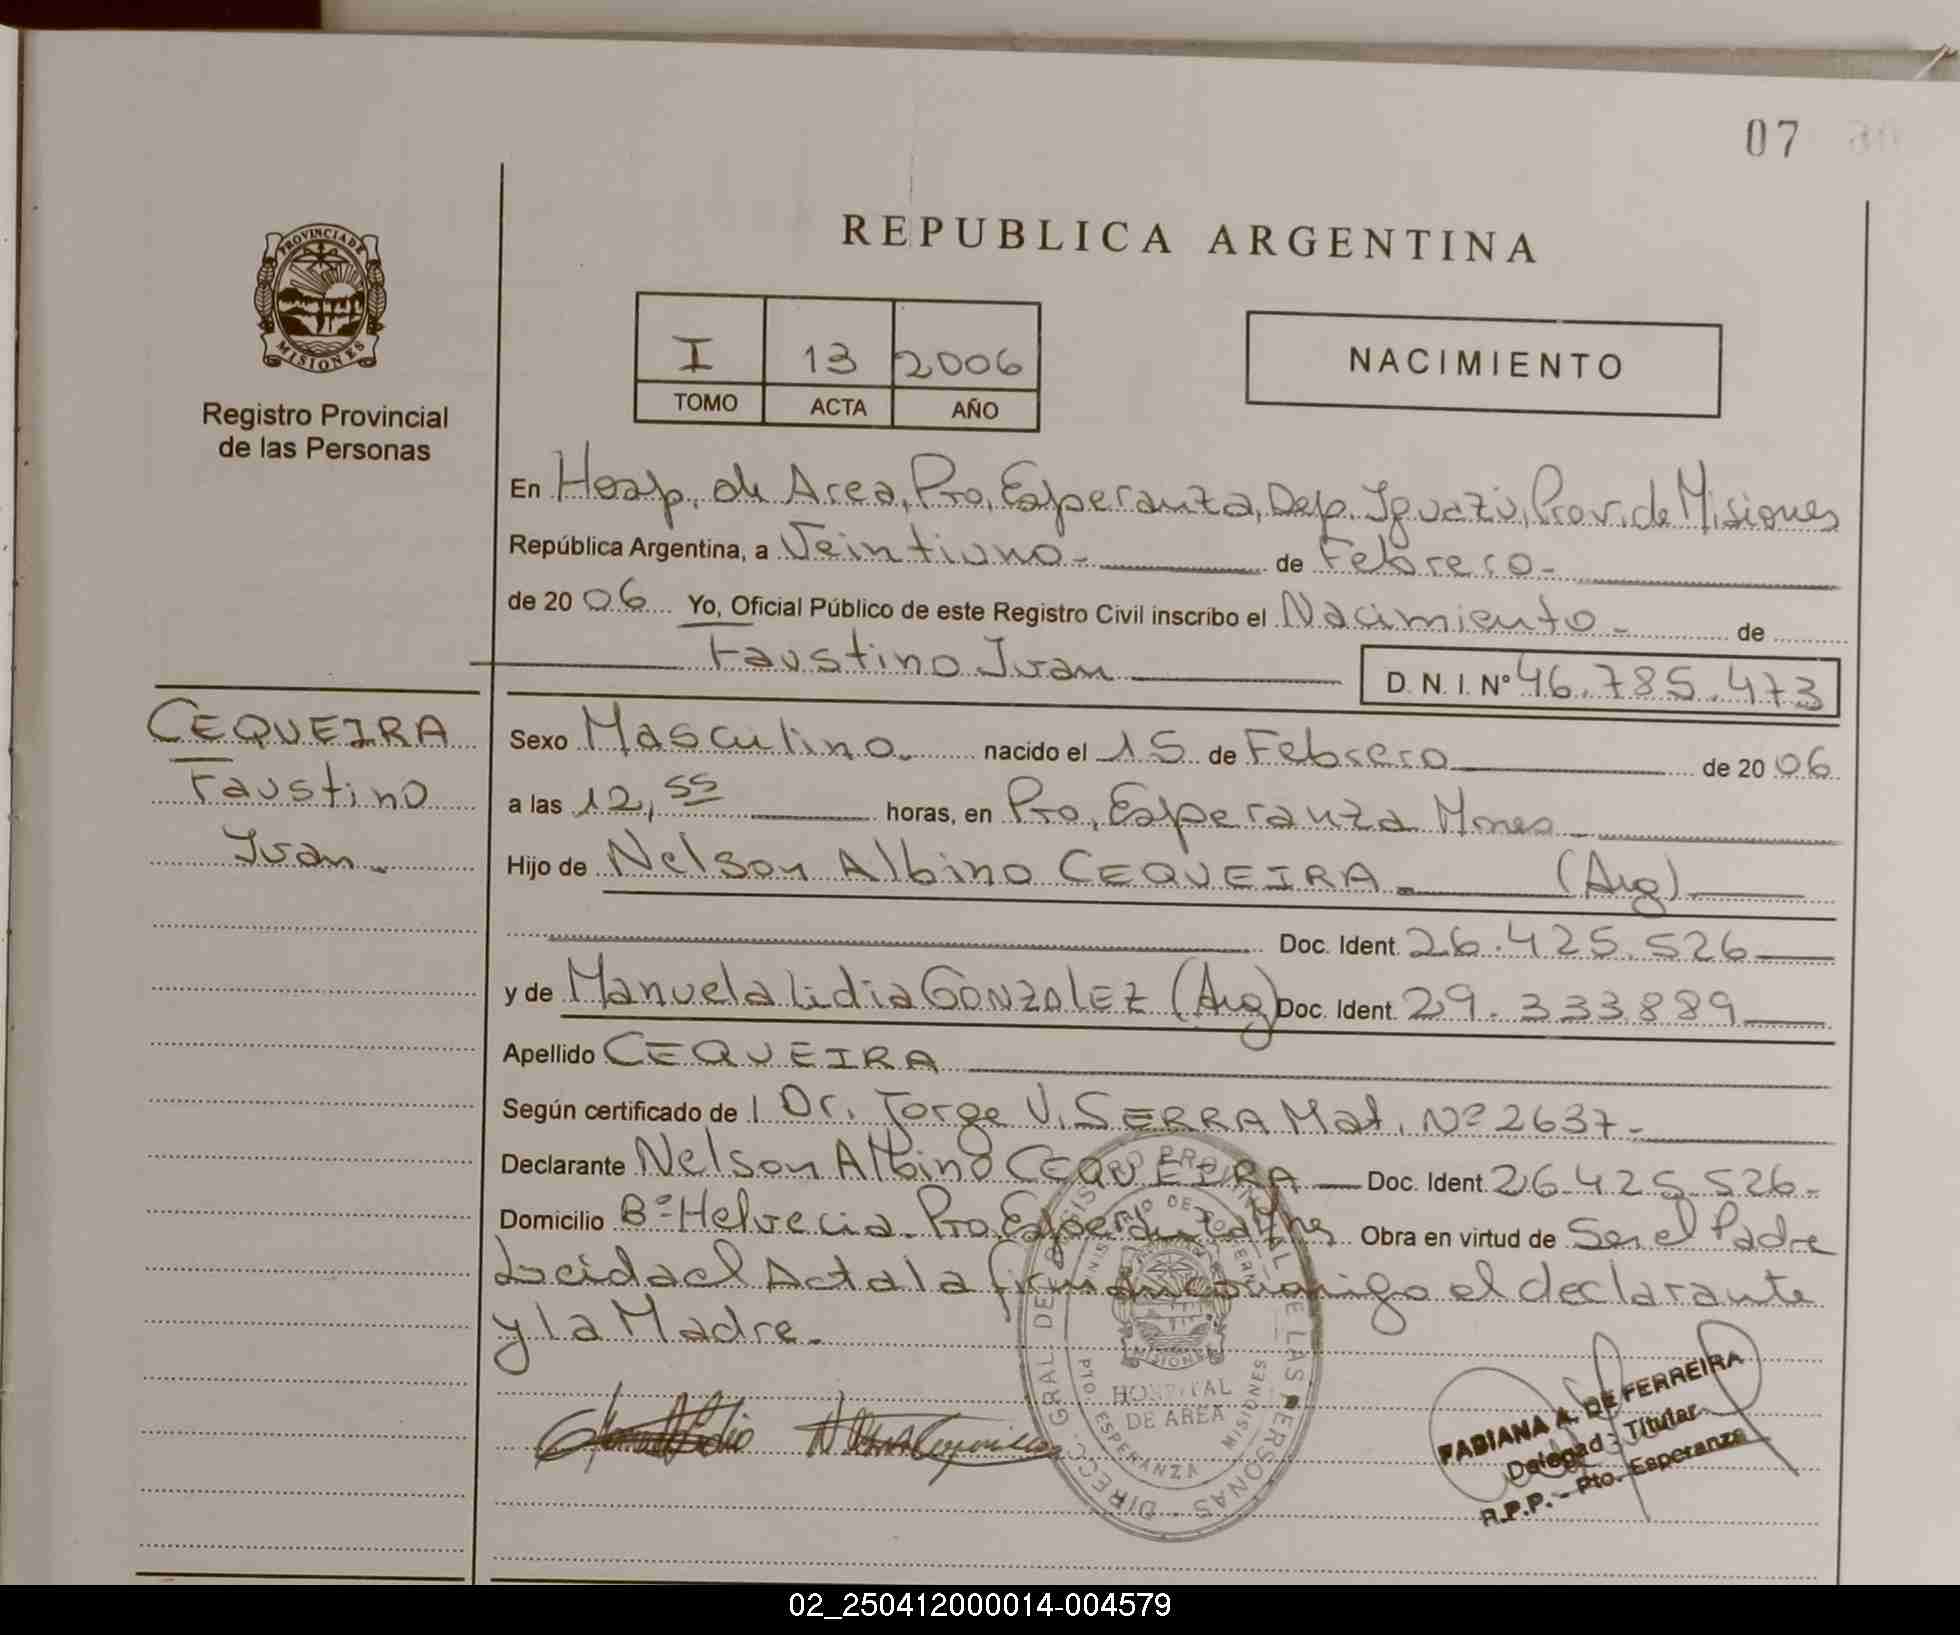 07
REPUBLICA ARGENTINA
PROVINCIA DE
MISIONES
Registro Provincial
de las Personas
I 13 2006
TOMO ACTA AÑO
NACIMIENTO
En Hosp. de Area, Pto. Esperanza, Dep. Iguazú, Prov. de Misiones
República Argentina, a Veintiuno- de Febrero-
de 20 06 Yo, Oficial Público de este Registro Civil inscribo el Nacimiento- de
Faustino Ivan
D. N. I. Nº 46.785.473
CEQUEIRA
Faustino
Ivan-
Sexo Masculino- nacido el 15 de Febrero de 20 06
a las 12,55 horas, en Pto. Esperanza Mnes-
Hijo de Nelson Albino CEQUEIRA- (Arg)
Doc. Ident. 26.425.526
y de Manuela Lidia GONZALEZ (Arg) Doc. Ident. 29.333889
Apellido CEQUEIRA
Según certificado de l Dr. Jorge V. SERRA Mat. Nº 2637-
Declarante Nelson Albino CEQUEIRA Doc. Ident 26.425.526-
Domicilio Bº Helvecia. Pto. Esperanza Mnes Obra en virtud de Ser el Padre
Leida el Acta la firman conmigo el declarante
y la Madre.
DIRECC. GRAL. DEL REGISTRO PROVINCIAL DE LAS PERSONAS
MISIONES
HOSPITAL
DE AREA
PTO. ESPERANZA MISIONES
FABIANA A. DE FERREIRA
Delegad Titular
R.P.P. - Pto. Esperanza
02_250412000014-004579